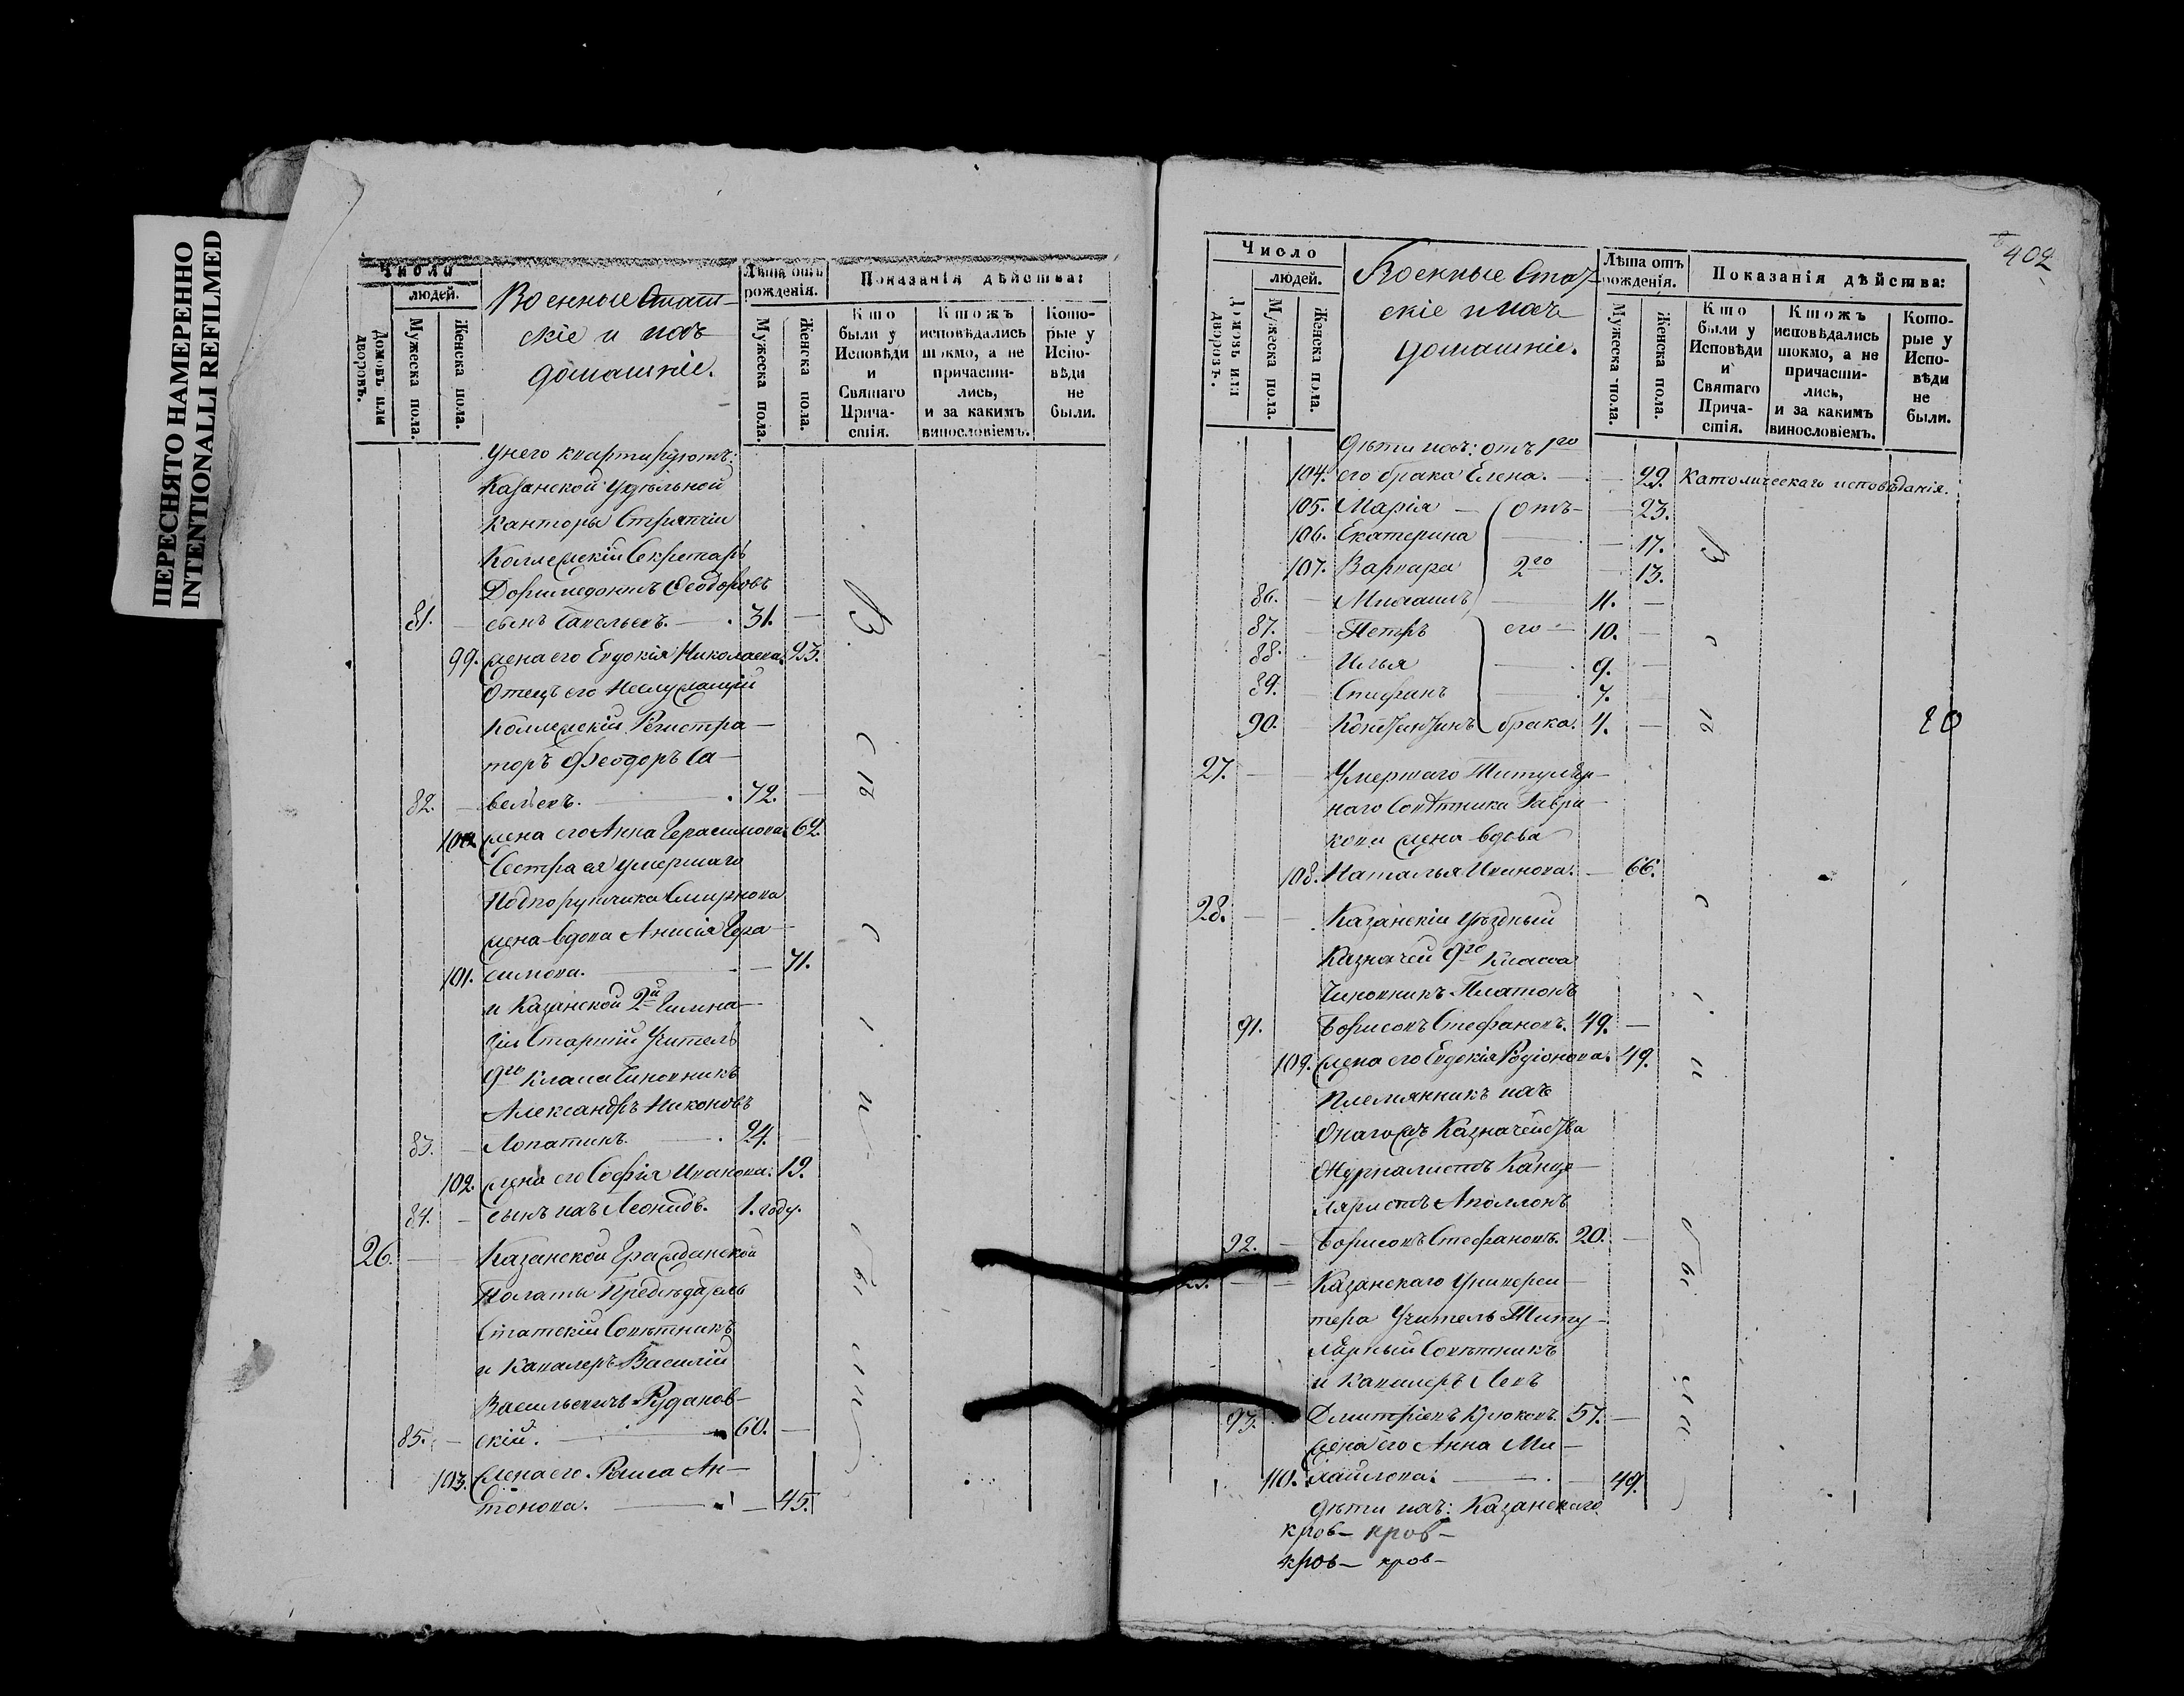 ПЕРЕСНЯТО НАМЕРЕННО
INTENTIONALLI REFILMED
Число
людей.
Домовъ или дворовъ.
Мужеска пола.
Женска пола.
Военные Стат-
скіе и ихъ
домашніе.
Лѣта отъ рожденія.
Мужеска пола.
Женска пола.
Показанія дѣйства:
Кто были у Исповѣди и Святаго Прича- стія.
Ктожъ исповѣдались токмо, а не причасти- лись, и за какимъ винословіемъ.
Кото- рые у Испо- вѣди не были.
У него квартируютъ:
Казанской Удѣльной
Канторы Стряпчій
Коллежскій Секретарь
Доримедонтъ Ѳеодоровъ
81. — сынъ Савельевъ. — 31. —
99. жена его Евдокія Николаева. 23.
Отецъ его Неслужащій
Коллежскій Регистра-
торъ Феодоръ Са-
82. — вельевъ. — 72. —
100. жена его Анна Герасимова. 62.
Сестра ея умершаго
Подпоручика Смирнова
жена вдова Анисія Гера-
101. симова. — 71.
и Казанской 2й Гимна-
зіи Старшій Учитель
9го Класса Чиновникъ
Александръ Никоновъ
83. — Лопатинъ. — 24. —
102. жена его Софія Иванова. 19.
84. — сынъ ихъ Леонидъ. 1. году.
26. — — Казанской Гражданской
Палаты Предсѣдатель
Статскій Совѣтникъ
и Кавалеръ Василій
Васильевичъ Рудаков-
85. — скій. — 60. —
103. жена его Раиса Ан-
тонова. — 45.
402
Число
людей.
Домовъ или дворовъ.
Мужеска пола.
Женска пола.
Военные Стат-
скіе и ихъ
домашніе.
Лѣта отъ рожденія.
Мужеска пола.
Женска пола.
Показанія дѣйства:
Кто были у Исповѣди и Святаго Прича- стія.
Ктожъ исповѣдались токмо, а не причасти- лись, и за какимъ винословіемъ.
Кото- рые у Испо- вѣди не были.
Дѣти ихъ: отъ 1го
104. его брака Елена. — 29. Католическаго исповѣданія.
105. Марія — отъ — 23.
106. Екатерина — 17.
107. Варвара 2го — 13.
86. — Михаилъ — 11. —
87. — Петръ его — 10. —
88. — Илья — 9. —
89. — Стефанъ — 7. —
90. — Константинъ брака. 4. —
27. — — Умершаго Титуляр-
наго Совѣтника Гаври-
кова жена вдова
108. Наталья Иванова. — 66.
28. — — Казанскій Уѣздный
Казначей 9го Класса
Чиновникъ Платонъ
91. Борисовъ Стефановъ. 49. —
109. жена его Евдокія Родіонова. 49.
Племянникъ ихъ
Онагожъ Казначейства
Журналистъ Канце-
ляристъ Аполлонъ
92. — Борисовъ Стефановъ. 20. —
— — Казанскаго Универси-
тета Учитель Титу-
лярный Совѣтникъ
и Кавалеръ Левъ
93. Дмитріевъ Крюковъ. 57. —
жена его Анна Ми-
110. хайлова. — 49.
дѣти ихъ: Казанскаго
кров— кров—
кров— кров—